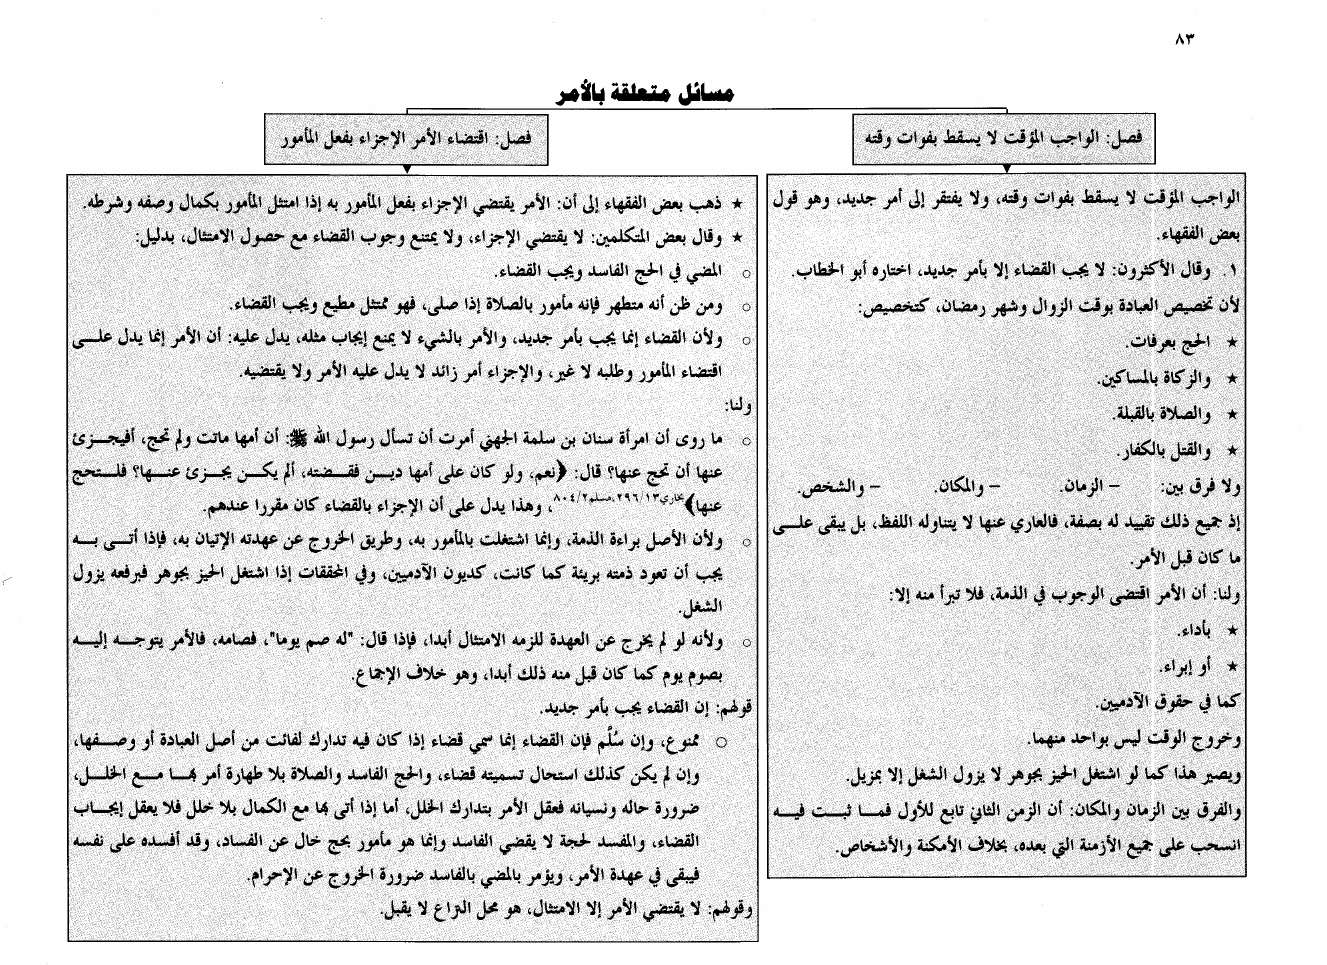 ٨٣
مسائل متعلقة بالأمر
فصل: الواجب المؤقت لا يسقط بفوات وقته
الواجب المؤقت لا يسقط بفوات وقته، ولا يفتقر إلى أمر جديد، وهو قول
بعض الفقهاء.
١. وقال الأكثرون: لا يجب القضاء إلا بأمر جديد، اختاره أبو الخطاب.
لأن تخصيص العبادة بوقت الزوال وشهر رمضان، كتخصيص:
★ الحج بعرفات.
★ والزكاة بالمساكين.
★ والصلاة بالقبلة.
★ والقتل بالكفار.
ولا فرق بين: – الزمان. – والمكان. – والشخص.
إذ جميع ذلك تقييد له بصفة، فالعاري عنها لا يتناوله اللفظ، بل يبقى على
ما كان قبل الأمر.
ولنا: أن الأمر اقتضى الوجوب في الذمة، فلا تبرأ منه إلا:
★ بأداء.
★ أو إبراء.
كما في حقوق الآدميين.
وخروج الوقت ليس بواحد منهما.
ويصير هذا كما لو اشتغل الحيز بجوهر لا يزول الشغل إلا بمزيل.
والفرق بين الزمان والمكان: أن الزمن الثاني تابع للأول فما ثبت فيه
انسحب على جميع الأزمنة التي بعده، بخلاف الأمكنة والأشخاص.
فصل: اقتضاء الأمر الإجزاء بفعل المأمور
★ ذهب بعض الفقهاء إلى أن: الأمر يقتضي الإجزاء بفعل المأمور به إذا امتثل المأمور بكمال وصفه وشرطه.
★ وقال بعض المتكلمين: لا يقتضي الإجزاء، ولا يمتنع وجوب القضاء مع حصول الامتثال، بدليل:
○ المضي في الحج الفاسد ويجب القضاء.
○ ومن ظن أنه متطهر فإنه مأمور بالصلاة إذا صلى، فهو ممتثل مطيع ويجب القضاء.
○ ولأن القضاء إنما يجب بأمر جديد، والأمر بالشيء لا يمنع إيجاب مثله، يدل عليه: أن الأمر إنما يدل على
اقتضاء المأمور وطلبه لا غير، والإجزاء أمر زائد لا يدل عليه الأمر ولا يقتضيه.
ولنا:
○ ما روى أن امرأة سنان بن سلمة الجهني أمرت أن تسأل رسول الله ﷺ: أن أمها ماتت ولم تحج، أفيجزئ
عنها أن تحج عنها؟ قال: ﴿نعم، ولو كان على أمها دين فقضته، ألم يكن يجزئ عنها؟ فلتحج
عنها﴾ بخاري٢٩٦/١٣، مسلم٨٠٤/٢، وهذا يدل على أن الإجزاء بالقضاء كان مقررا عندهم.
○ ولأن الأصل براءة الذمة، وإنما اشتغلت بالمأمور به، وطريق الخروج عن عهدته الإتيان به، فإذا أتى به
يجب أن تعود ذمته بريئة كما كانت، كديون الآدميين، وفي المحققات إذا اشتغل الحيز بجوهر فبرفعه يزول
الشغل.
○ ولأنه لو لم يخرج عن العهدة للزمه الامتثال أبدا، فإذا قال: "له صم يوما"، فصامه، فالأمر يتوجه إليه
بصوم يوم كما كان قبل منه ذلك أبدا، وهو خلاف الإجماع.
قولهم: إن القضاء يجب بأمر جديد.
○ ممنوع، وإن سُلّم فإن القضاء إنما سمي قضاء إذا كان فيه تدارك لفائت من أصل العبادة أو وصفها،
وإن لم يكن كذلك استحال تسميته قضاء، والحج الفاسد والصلاة بلا طهارة أمر بها مع الخلل،
ضرورة حاله ونسيانه فعقل الأمر بتدارك الخلل، أما إذا أتى بها مع الكمال بلا خلل فلا يعقل إيجاب
القضاء، والمفسد لحجة لا يقضي الفاسد وإنما هو مأمور بحج خال عن الفساد، وقد أفسده على نفسه
فيبقى في عهدة الأمر، ويؤمر بالمضي بالفاسد ضرورة الخروج عن الإحرام.
وقولهم: لا يقتضي الأمر إلا الامتثال، هو محل النزاع لا يقبل.